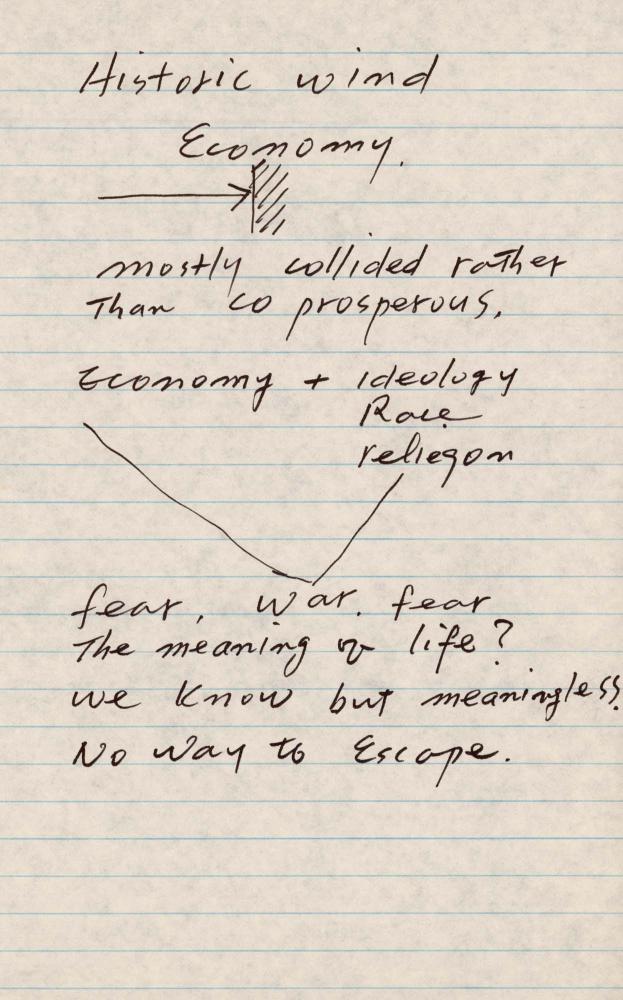 Historic wind
Economy.
mostly collided rather
Than co prosperous.
Economy + ideology
Race
reliegon
fear, war. fear
The meaning of life?
we know but meaningless.
No way to Escape.